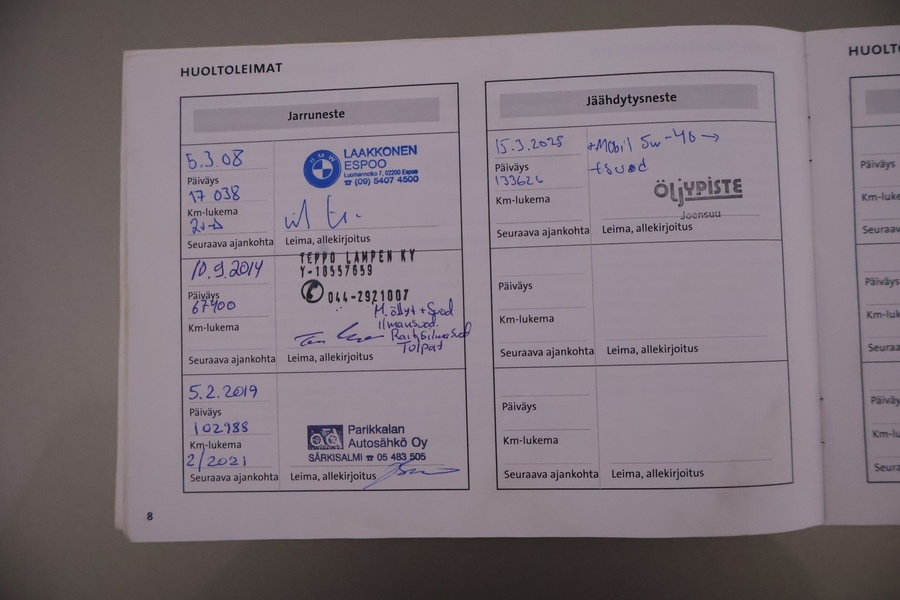 HUOLTOLEIMAT
Jarruneste
5.3.08
Päiväys
17 038
Km-lukema
Seuraava ajankohta
BMW
LAAKKONEN
ESPOO
Luomannotko 7, 02200 Espoo
☎ (09) 5407 4500
Leima, allekirjoitus
10.9.2014
Päiväys
67400
Km-lukema
Seuraava ajankohta
TEPPO LAMPEN KY
Y-18557659
044-2921007
M.öllyt + Suod
ilmansuod.
Raitisilmasuod
Tulpat
Leima, allekirjoitus
5.2.2019
Päiväys
102988
Km-lukema
2/2021
Seuraava ajankohta
Parikkalan
Autosähkö Oy
SÄRKISALMI ☎ 05 483 505
Leima, allekirjoitus
8
Jäähdytysneste
15.3.2025
Päiväys
Km-lukema
Seuraava ajankohta
+Mobil 5w-40 →
+suod
ÖljYPISTE
Joensuu
Leima, allekirjoitus
Päiväys
Km-lukema
Seuraava ajankohta
Leima, allekirjoitus
Päiväys
Km-lukema
Seuraava ajankohta
Leima, allekirjoitus
HUOLTO
Päiväys
Km-luke
Seuraav
Päiväys
Km-luk
Seuraa
Päiväy
Km-lu
Seura